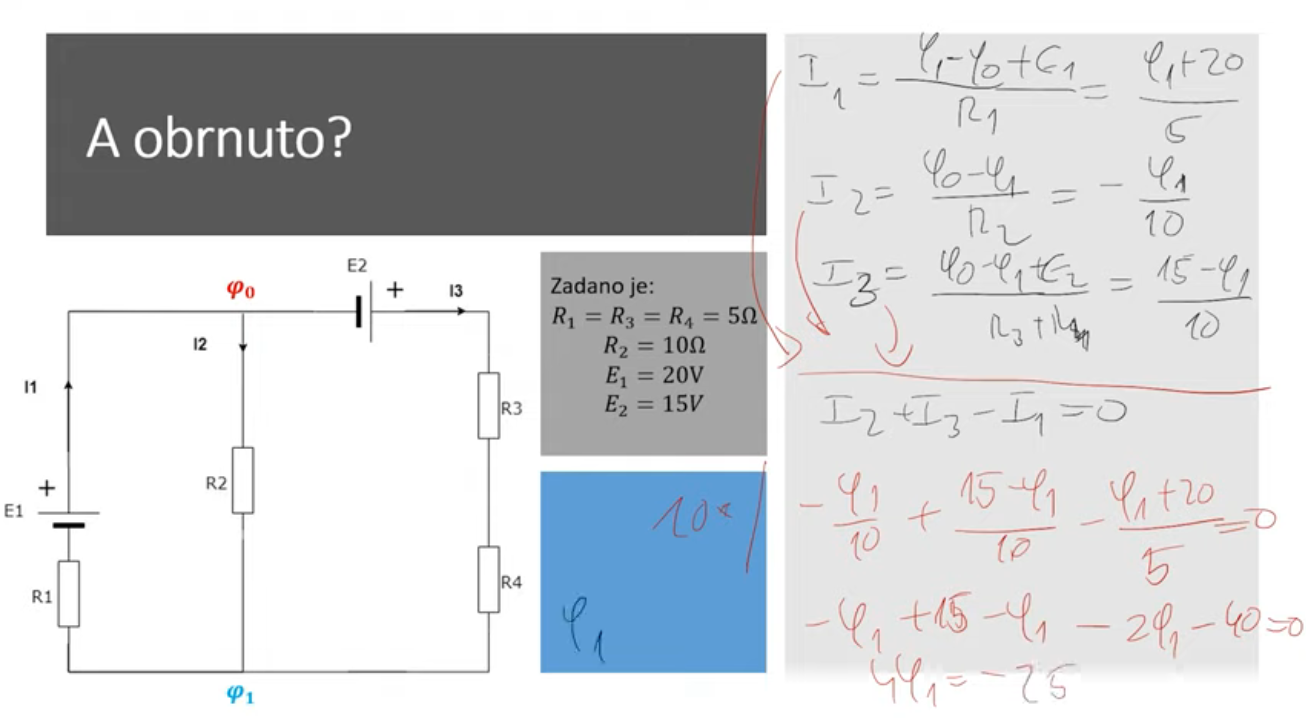 A obrnuto?
φ₀
E2
+
I3
I2
I1
R3
R2
+
E1
R1
R4
φ₁
Zadano je:
R₁ = R₃ = R₄ = 5Ω
R₂ = 10Ω
E₁ = 20V
E₂ = 15V
10·/
φ₁
I₁ = (φ₁-φ₀+E₁)/R₁ = (φ₁+20)/5
I₂ = (φ₀-φ₁)/R₂ = -φ₁/10
I₃ = (φ₀-φ₁+E₂)/(R₃+R₄) = (15-φ₁)/10
I₂+I₃-I₁=0
-φ₁/10 + (15-φ₁)/10 - (φ₁+20)/5 =0
-φ₁+15-φ₁-2φ₁-40=0
4φ₁=-25